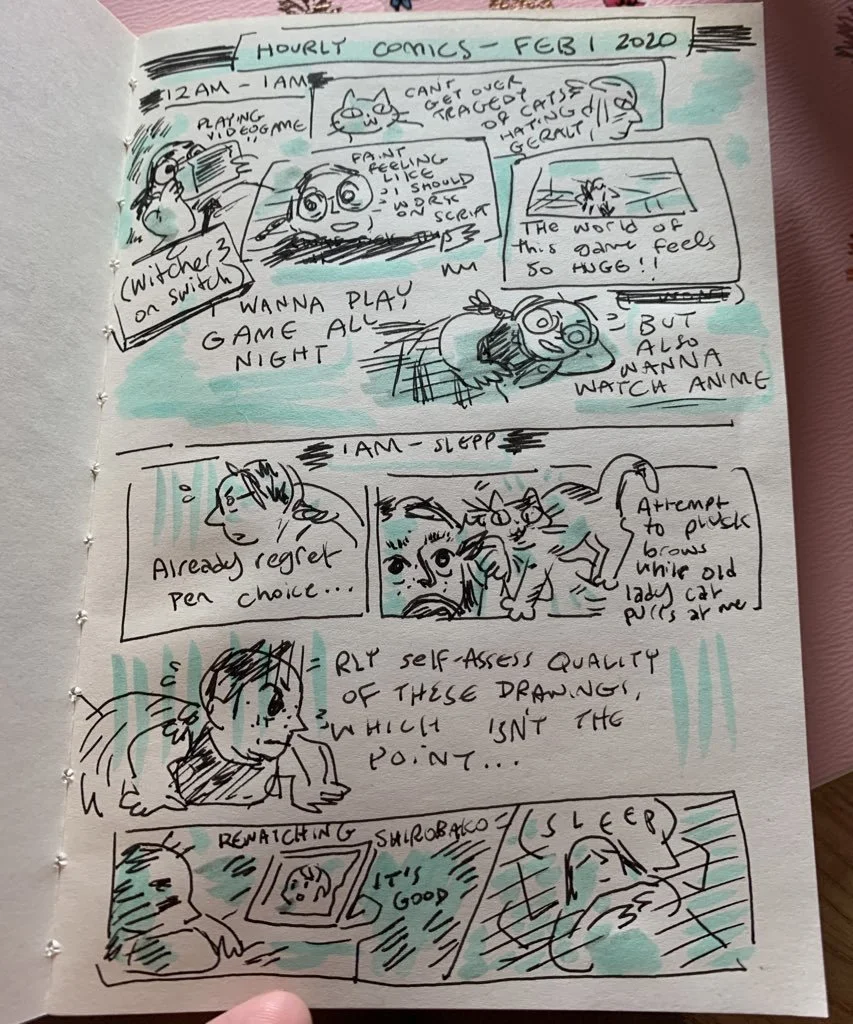 HOURLY COMICS - FEB 1 2020
12AM - 1AM
PLAYING
VIDEOGAME
(Witcher 3
on switch)
CAN'T
GET OVER
TRAGEDY
OF CATS
HATING
GERALT
FAINT
FEELING
LIKE
I SHOULD
WORK
ON SCRIPT
The world of
this game feels
so HUGE!!
I WANNA PLAY
GAME ALL
NIGHT
BUT
ALSO
WANNA
WATCH ANIME
1AM - SLEPP
Already regret
pen choice...
Attempt
to pluck
brows
while old
lady cat
purrs at me
RLY SELF-ASSESS QUALITY
OF THESE DRAWINGS,
WHICH ISN'T THE
POINT...
REWATCHING SHIROBAKO
IT'S
GOOD
(SLEEP)